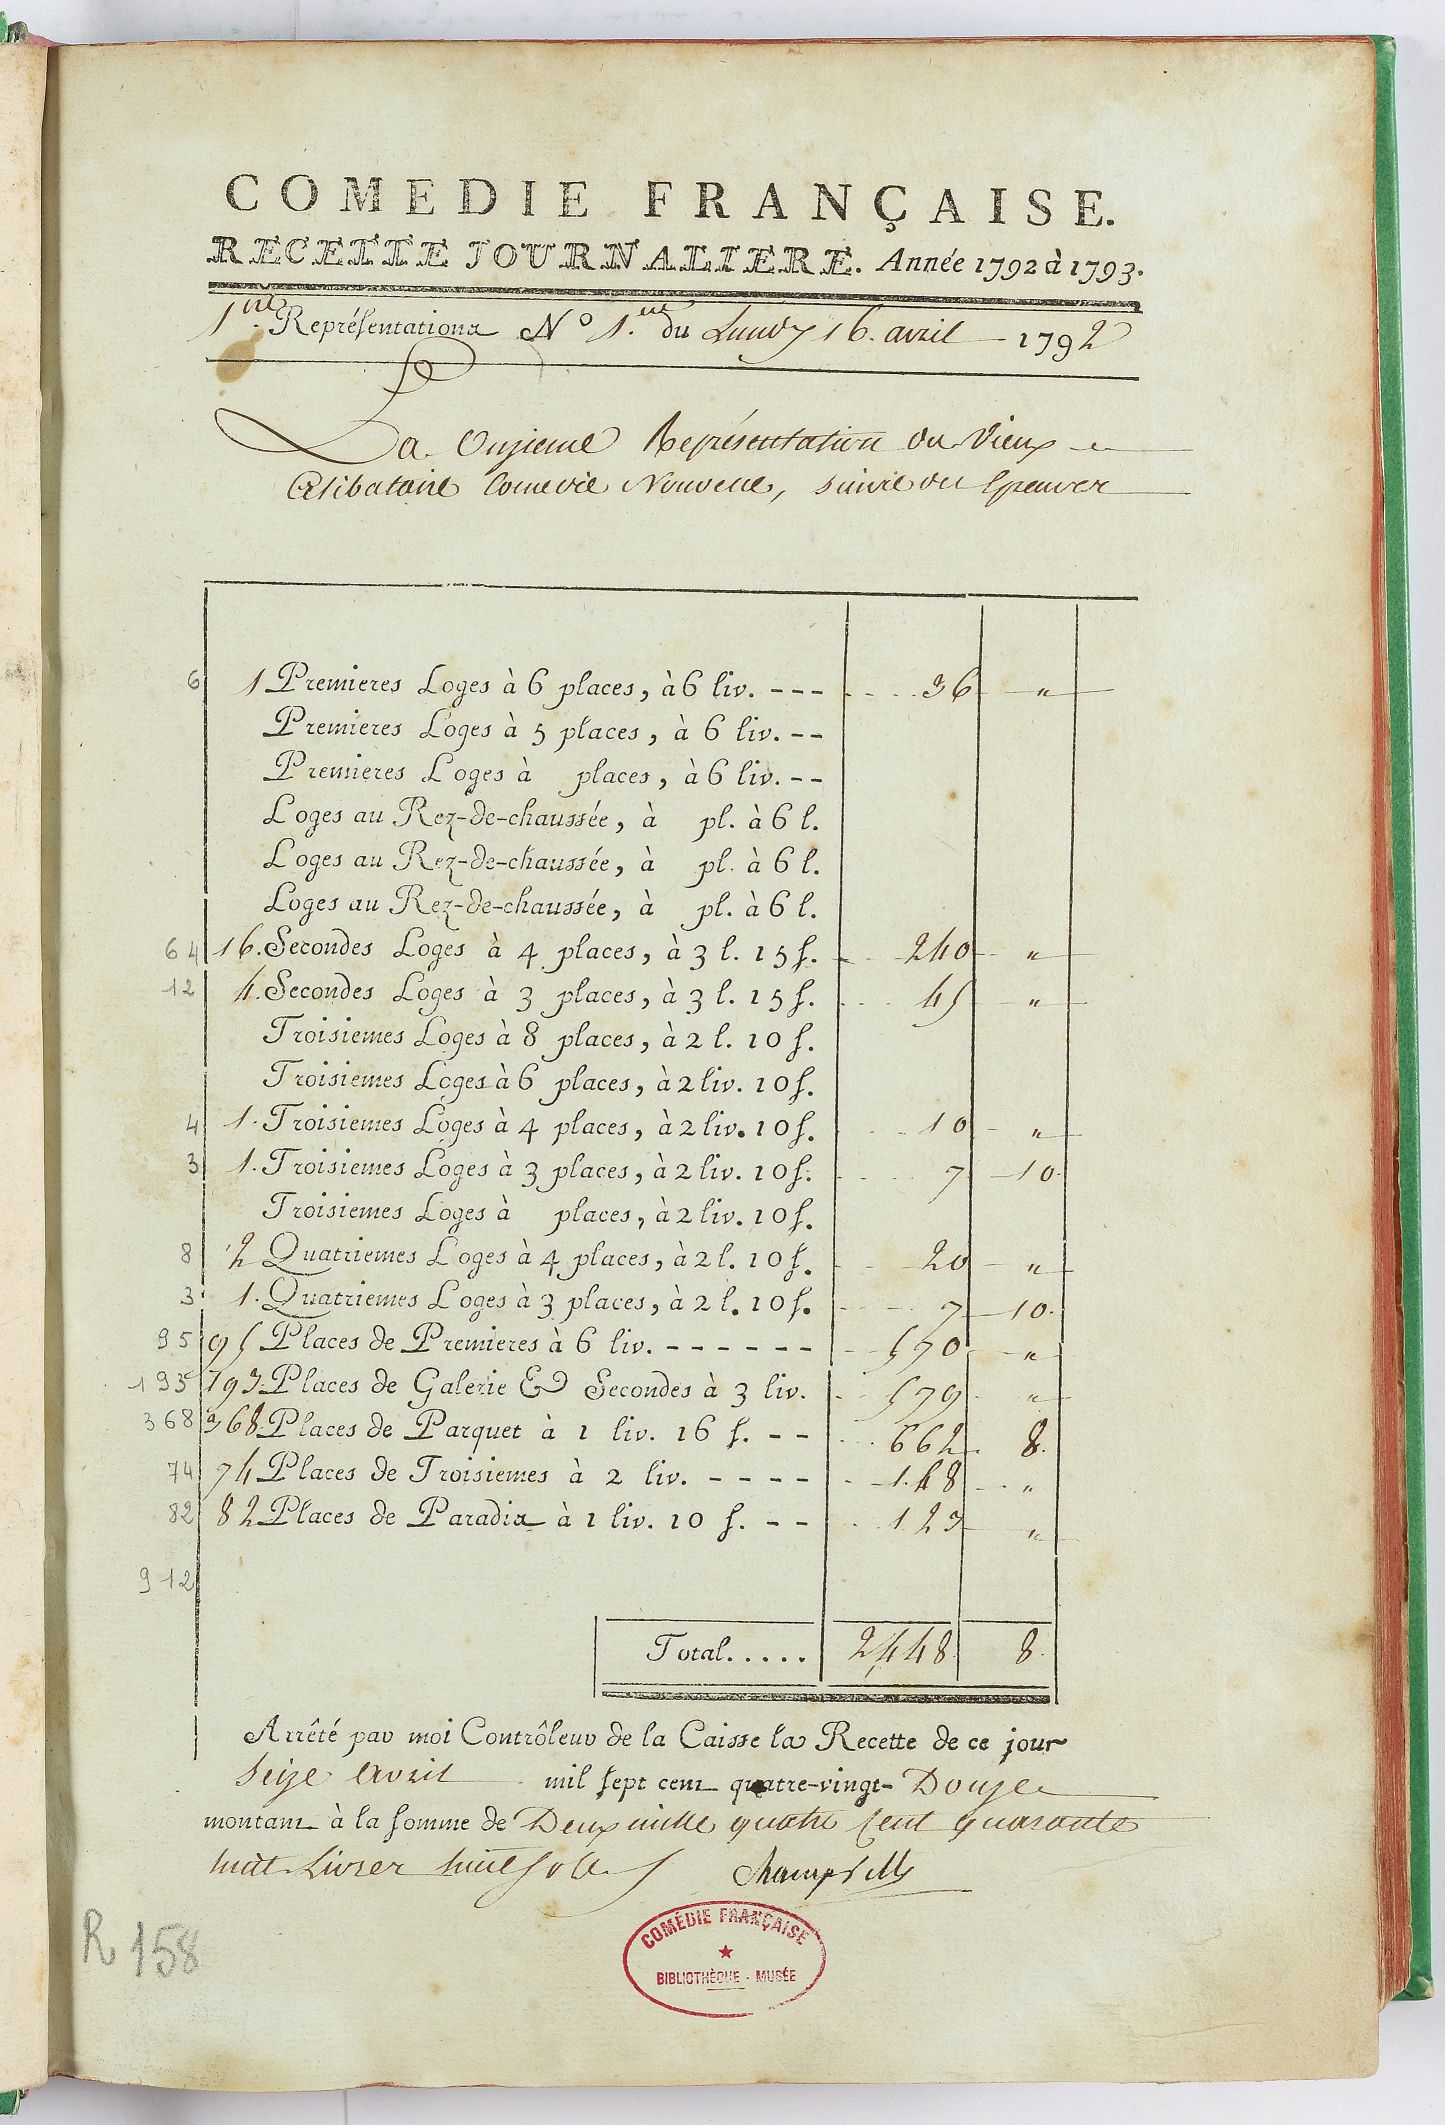 COMEDIE FRANÇAISE.
RECETTE JOURNALIERE. Année 1792 à 1793.
1ere Représentations No 1.ere du Lundy 16. avril 1792
La Onzieme Représentation du Vieux
Célibataire Comedie Nouvelle, suivie de
6 1 Premieres Loges à 6 places, à 6 liv. --- 36 "
Premieres Loges à 5 places, à 6 liv. --
Premieres Loges à places, à 6 liv. --
Loges au Rez-de-chaussée, à pl. à 6 l.
Loges au Rez-de-chaussée, à pl. à 6 l.
Loges au Rez-de-chaussée, à pl. à 6 l.
64 16. Secondes Loges à 4 places, à 3 l. 15 s. 240 "
12 4. Secondes Loges à 3 places, à 3 l. 15 s. 45 "
Troisiemes Loges à 8 places, à 2 l. 10 s.
Troisiemes Loges à 6 places, à 2 liv. 10 s.
4 1. Troisiemes Loges à 4 places, à 2 liv. 10 s. 10 "
3 1. Troisiemes Loges à 3 places, à 2 liv. 10 s. 7 10.
Troisiemes Loges à places, à 2 liv. 10 s.
8 2 Quatriemes Loges à 4 places, à 2 l. 10 s. 20 "
3 1. Quatriemes Loges à 3 places, à 2 l. 10 s. 7 10.
95 95 Places de Premieres à 6 liv. ------ 570 "
193 193. Places de Galerie & Secondes à 3 liv. 579 "
368 368 Places de Parquet à 1 liv. 16 s. -- 662 8.
74 74 Places de Troisiemes à 2 liv. ---- 148 "
82 82 Places de Paradis à 1 liv. 10 s. -- 123 "
912
Total..... 2,448 8.
Arrêté par moi Contrôleur de la Caisse la Recette de ce jour
Seize avril mil sept cent quatre-vingt-Douze
montant à la somme de Deux mille quatre cent quarante
huit Livres huit sols
R 158
COMÉDIE FRANÇAISE
BIBLIOTHÈQUE - MUSÉE